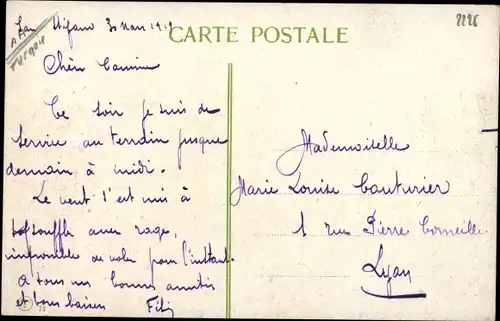 2226
San Stefano 30 Mars 1919
CARTE POSTALE
Turquie
Ce soir je suis de
service au terrain jusque
demain à midi.
Le vent s'est mis à
souffle avec rage,
impossible de voler pour l'instant.
A tous mes bonnes amitiés
et bons baisers
Mademoiselle
Marie Louise Couturier
1 rue Pierre Corneille
Lyon